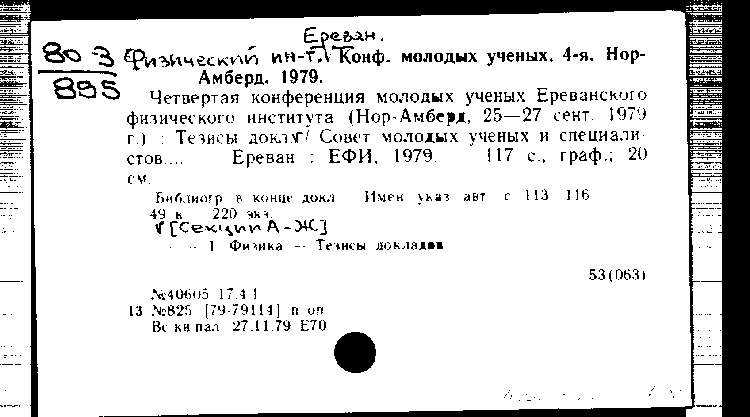 Ереван.
80 3 Физический ин-т. Конф. молодых ученых. 4-я. Нор-
895 Амберд. 1979.
Четвертая конференция молодых ученых Ереванского
физического института (Нор-Амберд, 25—27 сент. 1979
г.) : Тезисы докл. / Совет молодых ученых и специали-
стов... Ереван : ЕФИ, 1979. 117 с., граф.; 20
см.
Библиогр в конце докл Имен указ авт с 113 116
49 к 220 экз.
[Секции А-Ж]
— — 1 Физика — Тезисы докладов
53(063)
№40605 17.4 1
13 №825 [79-79114] п оп
Вс кн пал 27.11.79 Е70